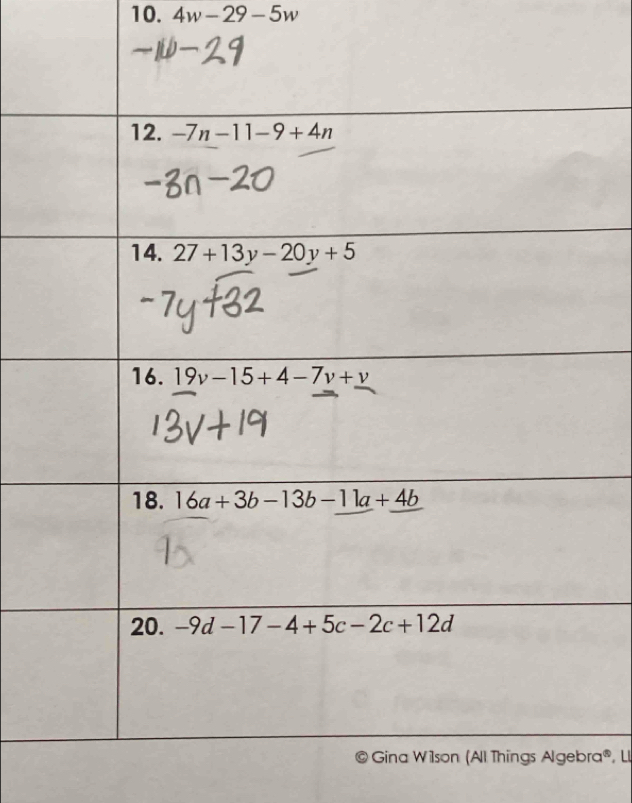 10. 4w – 29 – 5w
-w-29
12. –7n – 11 – 9 + 4n
-3n-20
14. 27 + 13y – 20y + 5
-7y+32
16. 19v – 15 + 4 – 7v + v
13v+19
18. 16a + 3b – 13b – 11a + 4b
20. –9d – 17 – 4 + 5c – 2c + 12d
© Gina Wilson (All Things Algebra®, LL